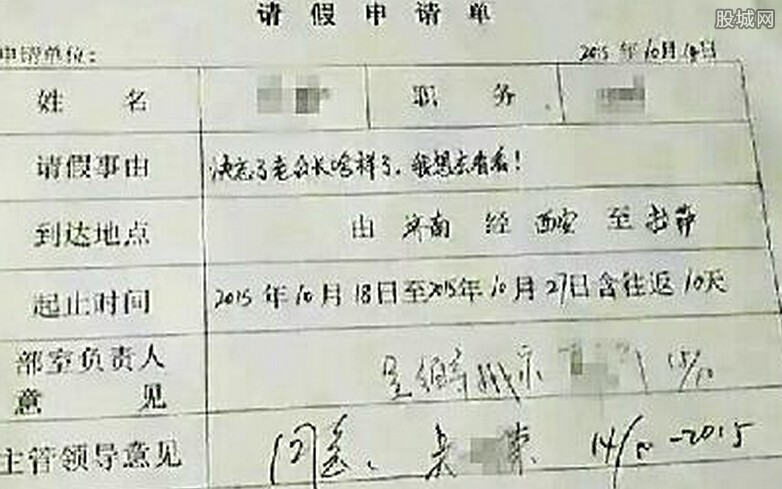 股城网
请假申请单
申请单位: 2015年10月14日
姓名 职务
请假事由 快忘了老公长啥样了,我想去看看!
到达地点 由 济南 经 西安 至 拉萨
起止时间 2015年10月18日至2015年10月27日含往返10天
部室负责人
意见 15/10
主管领导意见 同意、 14/10-2015